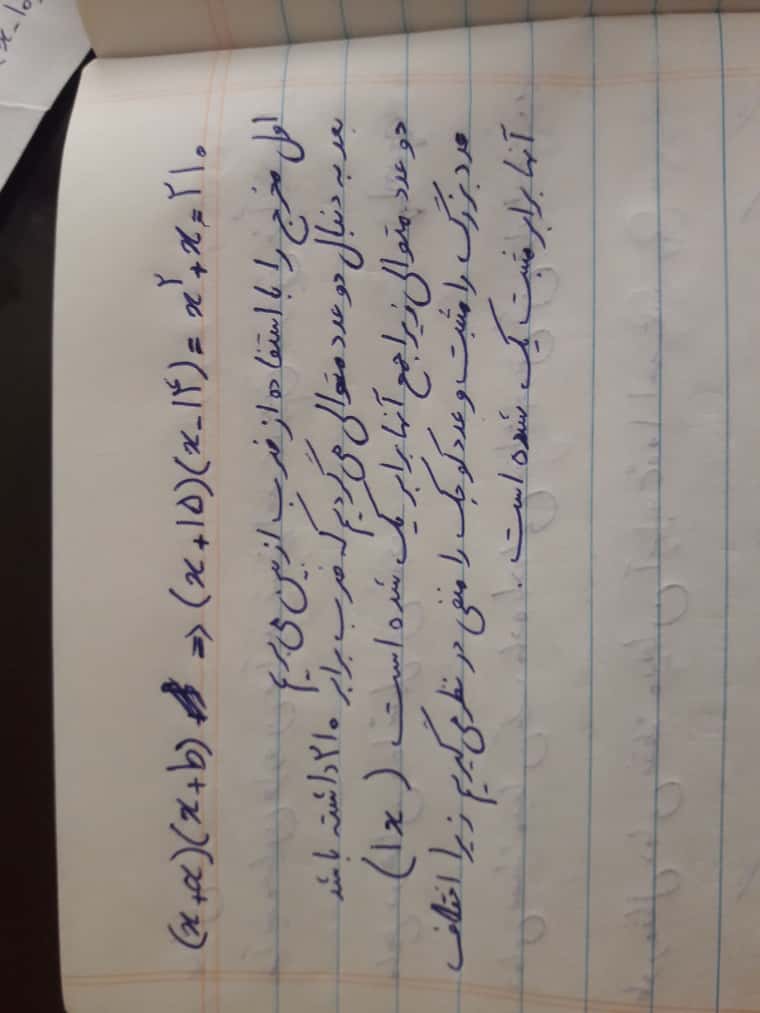 (x+a)(x+b) => (x+15)(x-14) = x²+x=210
اول مخرج را با استفاده از ضرب از بین می بریم
بعد به دنبال دو عدد متوالی می گردیم که ضرب برابر ۲۱۰ داشته باشد
دو عدد متوالی زیرا جمع آنها برابر یک شده است (1x)
عدد بزرگ را مثبت و عدد کوچک را منفی در نظر می گیریم زیرا اختلاف
آنها برابر مثبت یک شده است.